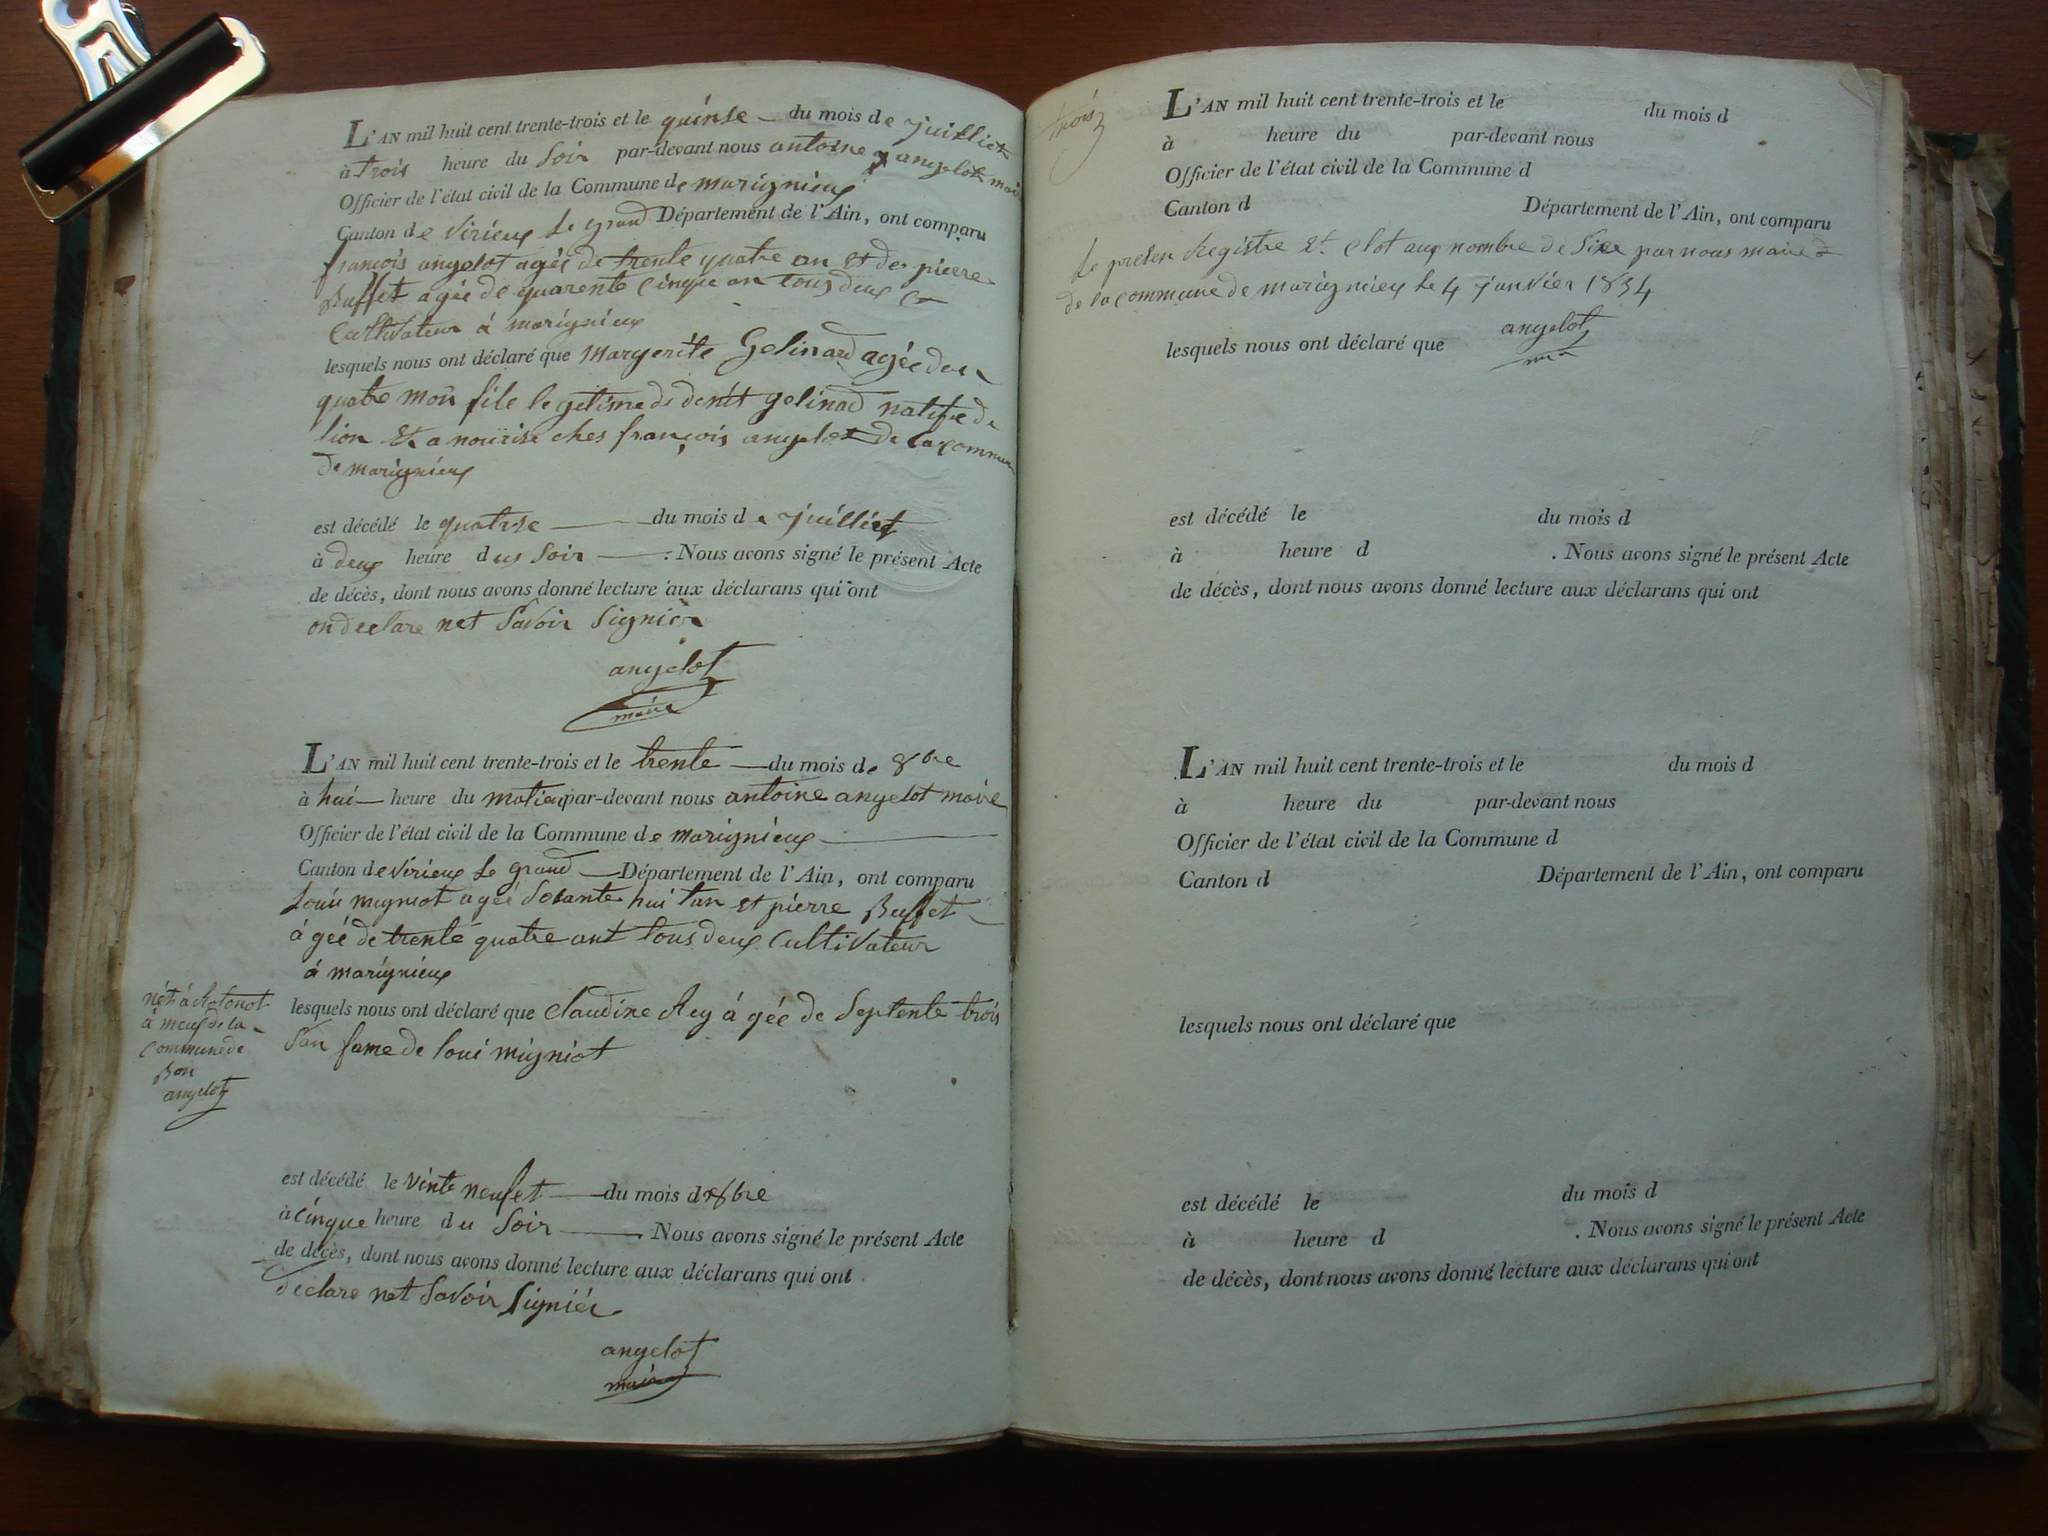 L'AN mil huit cent trente-trois et le quinse du mois de juilliet
à trois heure du soir par-devant nous antoine angelot maire
Officier de l'état civil de la Commune de marignieux
Canton de virieux Le grand Département de l'Ain, ont comparu
françois angelot agée de trente quatre an et de pierre
Buffet agée de quarente cinque an tous deux
Cultivateur á marignieux
lesquels nous ont déclaré que Margerite Gelinard agée de
quatre moi file legetime de denit gelinad natife de
lion Et a nourise ches françois angelot de la commune
de marignieux
est décédé le quatrse du mois de juilliet
à deux heure du soir : Nous avons signé le présent Acte
de décès, dont nous avons donné lecture aux déclarans qui ont
on declare net Savoir Signier
angelot
maire
L'AN mil huit cent trente-trois et le trente du mois de 8bre
à hui heure du matieu par-devant nous antoine angelot maire
Officier de l'état civil de la Commune de marignieux
Canton de virieux Le grand Département de l'Ain, ont comparu
Loui migniot agée Sosante hui tan et pierre Buffet
á gée de trente quatre ant tous deux Cultivateur
á marignieux
lesquels nous ont déclaré que Claudine Rey á gée de Septente trois
San fame de loui migniot
nét á
á de la
commune de
Bon
angelot
est décédé le vinte neufet du mois de 8bre
à cinque heure du Soir Nous avons signé le présent Acte
de décès, dont nous avons donné lecture aux déclarans qui ont
declare net Savoir Signiér
angelot
maire
trois
L'AN mil huit cent trente-trois et le du mois d
à heure du par-devant nous
Officier de l'état civil de la Commune d
Canton d Département de l'Ain, ont comparu
Le presen Registre Et clot aux nombre de Sixe par nous maire
de la commune de marignieux le 4 janvier 1834
angelot
lesquels nous ont déclaré que
est décédé le du mois d
à heure d . Nous avons signé le présent Acte
de décès, dont nous avons donné lecture aux déclarans qui ont
L'AN mil huit cent trente-trois et le du mois d
à heure du par-devant nous
Officier de l'état civil de la Commune d
Canton d Département de l'Ain, ont comparu
lesquels nous ont déclaré que
est décédé le du mois d
à heure d . Nous avons signé le présent Acte
de décès, dont nous avons donné lecture aux déclarans qui ont